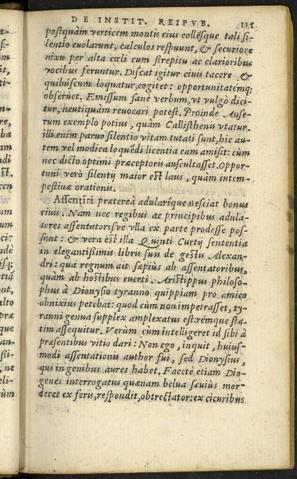 DE INSTIT. REIPVB.
postquàm verticem montis eius collésque tali si-
lentio euolarunt, calculos respuunt, & securiore
nixu per alta cæli cum strepitu ac clarioribus
vocibus feruntur. Discat igitur eius tacere &
quibuscum loquatur, cogitet: opportunitatémq;
obseruet. Emissum sanè verbum, vt vulgò dici-
tur, neutiquàm reuocari potest. Proinde Anse-
rum exemplo potius, quàm Callisthenis vtatur.
illi enim paruo silentio vitam tutati sunt, hic au-
tem vel modica loquēdi licentia eam amisit: cùm
nec dicto optimi præceptoris auscultasset. Oppor-
tuni verò silentij maior est laus, quàm intem-
pestiuæ orationis.
Assentiri prætereà adularíque nesciat bonus
eius. Nam nec regibus ac principibus adula-
tores assentatorésve vlla ex parte prodesse pos-
sunt: & vera est illa Quinti Curtij sententia
in elegantissimis libris suis de gestis Alexan-
dri: qua regnum ait sæpiùs ab assentatoribus,
quàm ab hostibus euerti. Aristippus philoso-
phus à Dionysio tyranno quippiam pro amico
obnixiùs petebat: quod cùm non impetrasset, ty-
ranni genua supplex amplexatus est: rémque sta-
tim assequitur. Verùm cùm intelligeret id sibi à
præsentibus vitio dari: Non ego, inquit, huius-
modi assentationis author fui, sed Dionysius,
qui in genibus aures habet. Facetè etiam Dio-
genes interrogatus quænam belua sæuiùs mor-
deret ex feris, respondit, obtrectator: ex cicuribus